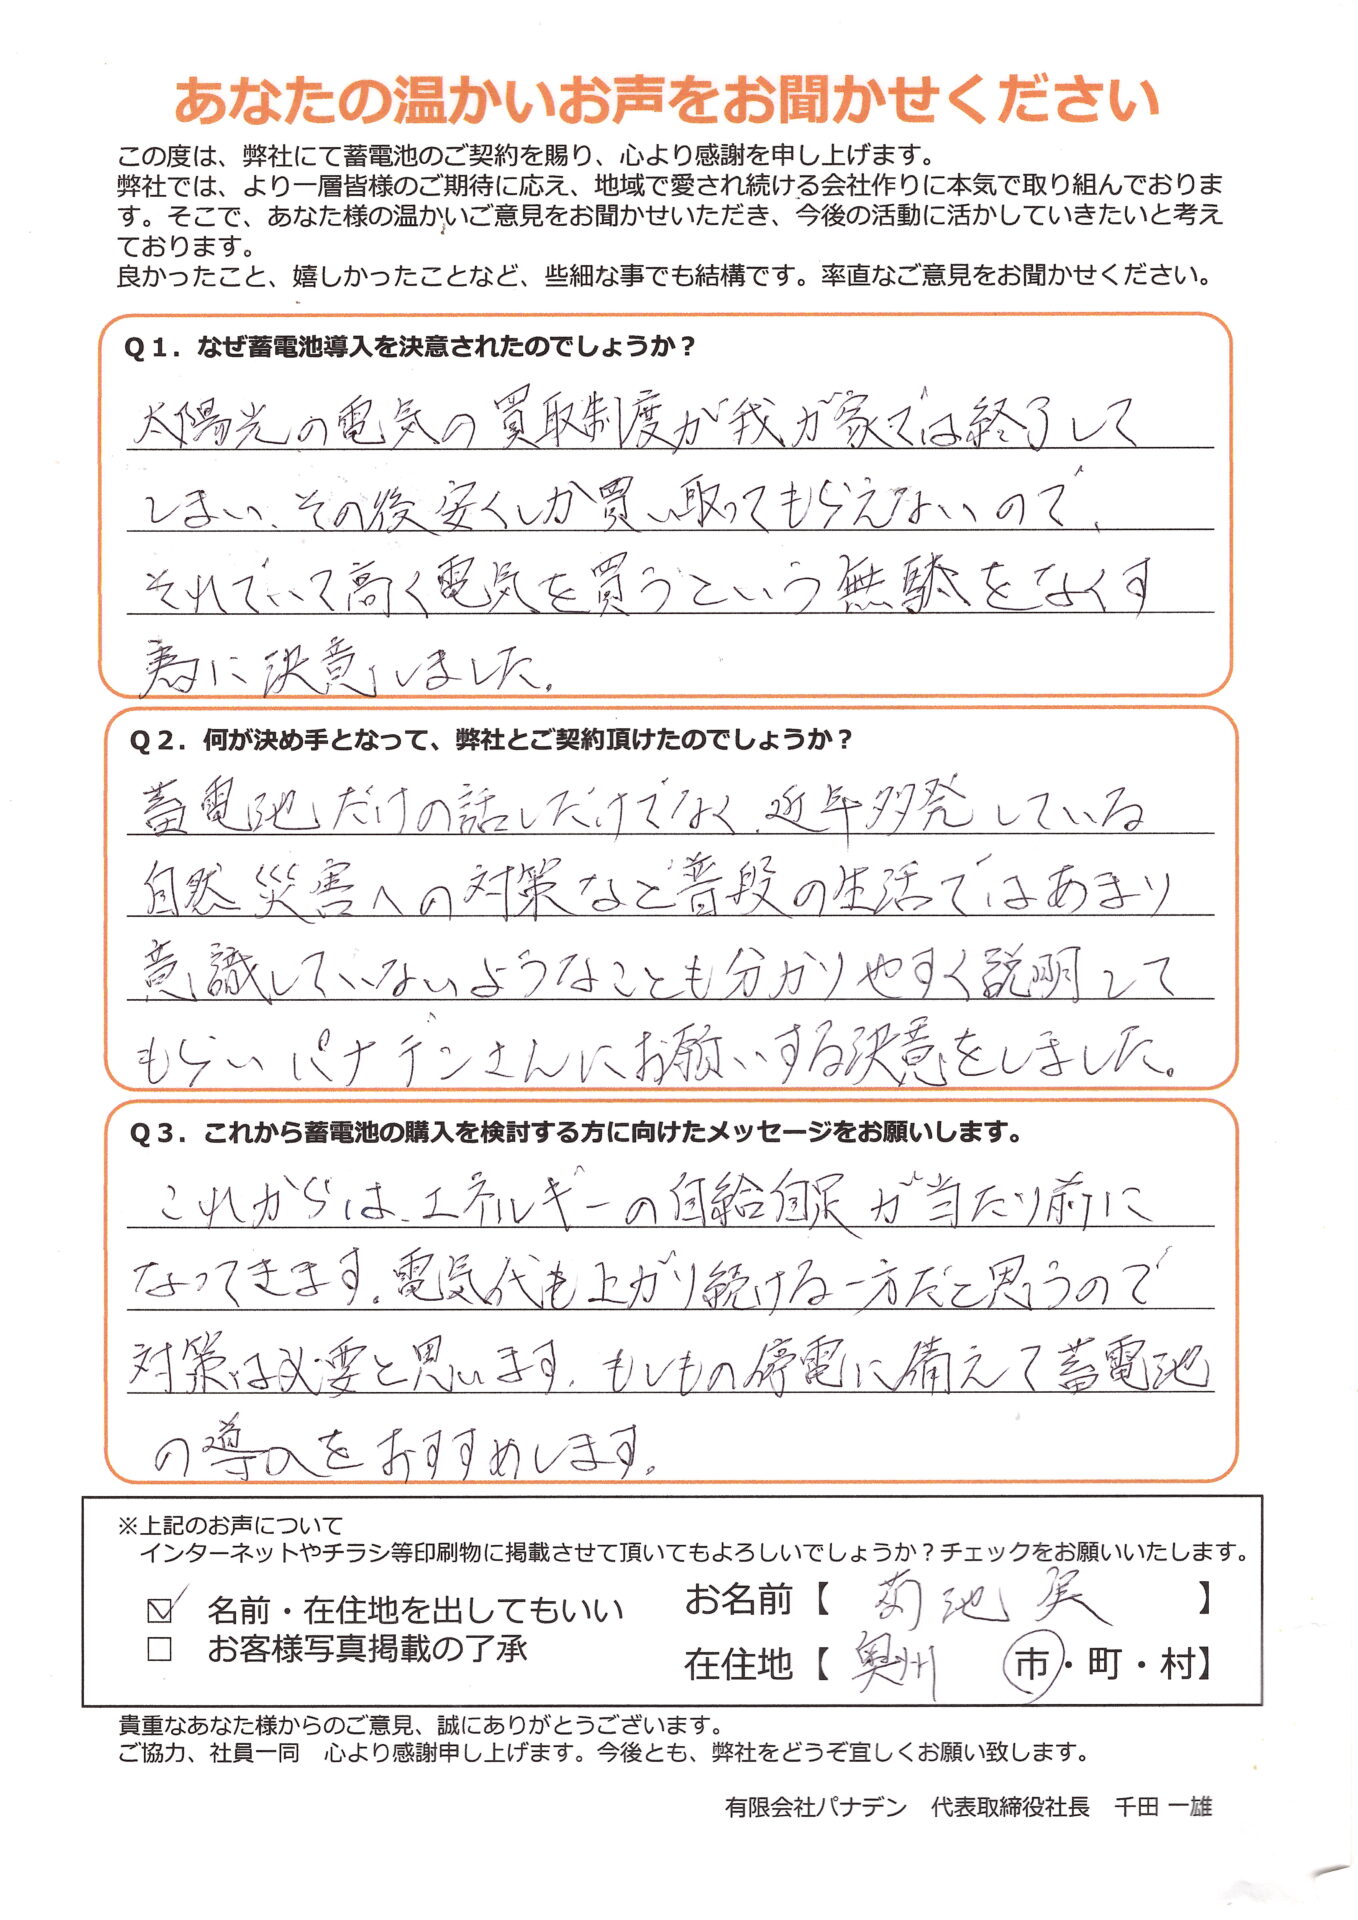 あなたの温かいお声をお聞かせください
この度は、弊社にて蓄電池のご契約を賜り、心より感謝を申し上げます。
弊社では、より一層皆様のご期待に応え、地域で愛され続ける会社作りに本気で取り組んでおりま
す。そこで、あなた様の温かいご意見をお聞かせいただき、今後の活動に活かしていきたいと考え
ております。
良かったこと、嬉しかったことなど、些細な事でも結構です。率直なご意見をお聞かせください。
Q1．なぜ蓄電池導入を決意されたのでしょうか？
太陽光の電気の買取制度が我が家では終了して
しまい、その後安くしか買い取ってもらえないので、
それでいて高く電気を買うという無駄をなくす
為に決意しました。
Q2．何が決め手となって、弊社とご契約頂けたのでしょうか？
蓄電池だけの話しだけでなく、近年多発している
自然災害への対策など普段の生活ではあまり
意識していないようなことも分かりやすく説明して
もらいパナデンさんにお願いする決意をしました。
Q3．これから蓄電池の購入を検討する方に向けたメッセージをお願いします。
これからは、エネルギーの自給自足が当たり前に
なってきます。電気代も上がり続ける一方だと思うので
対策は必要と思います。もしもの停電に備えて蓄電池
の導入をおすすめします。
※上記のお声について
インターネットやチラシ等印刷物に掲載させて頂いてもよろしいでしょうか？チェックをお願いいたします。
☑ 名前・在住地を出してもいい お名前【 菊池 実 】
□ お客様写真掲載の了承 在住地【 奥州 市・町・村】
貴重なあなた様からのご意見、誠にありがとうございます。
ご協力、社員一同 心より感謝申し上げます。今後とも、弊社をどうぞ宜しくお願い致します。
有限会社パナデン 代表取締役社長 千田 一雄